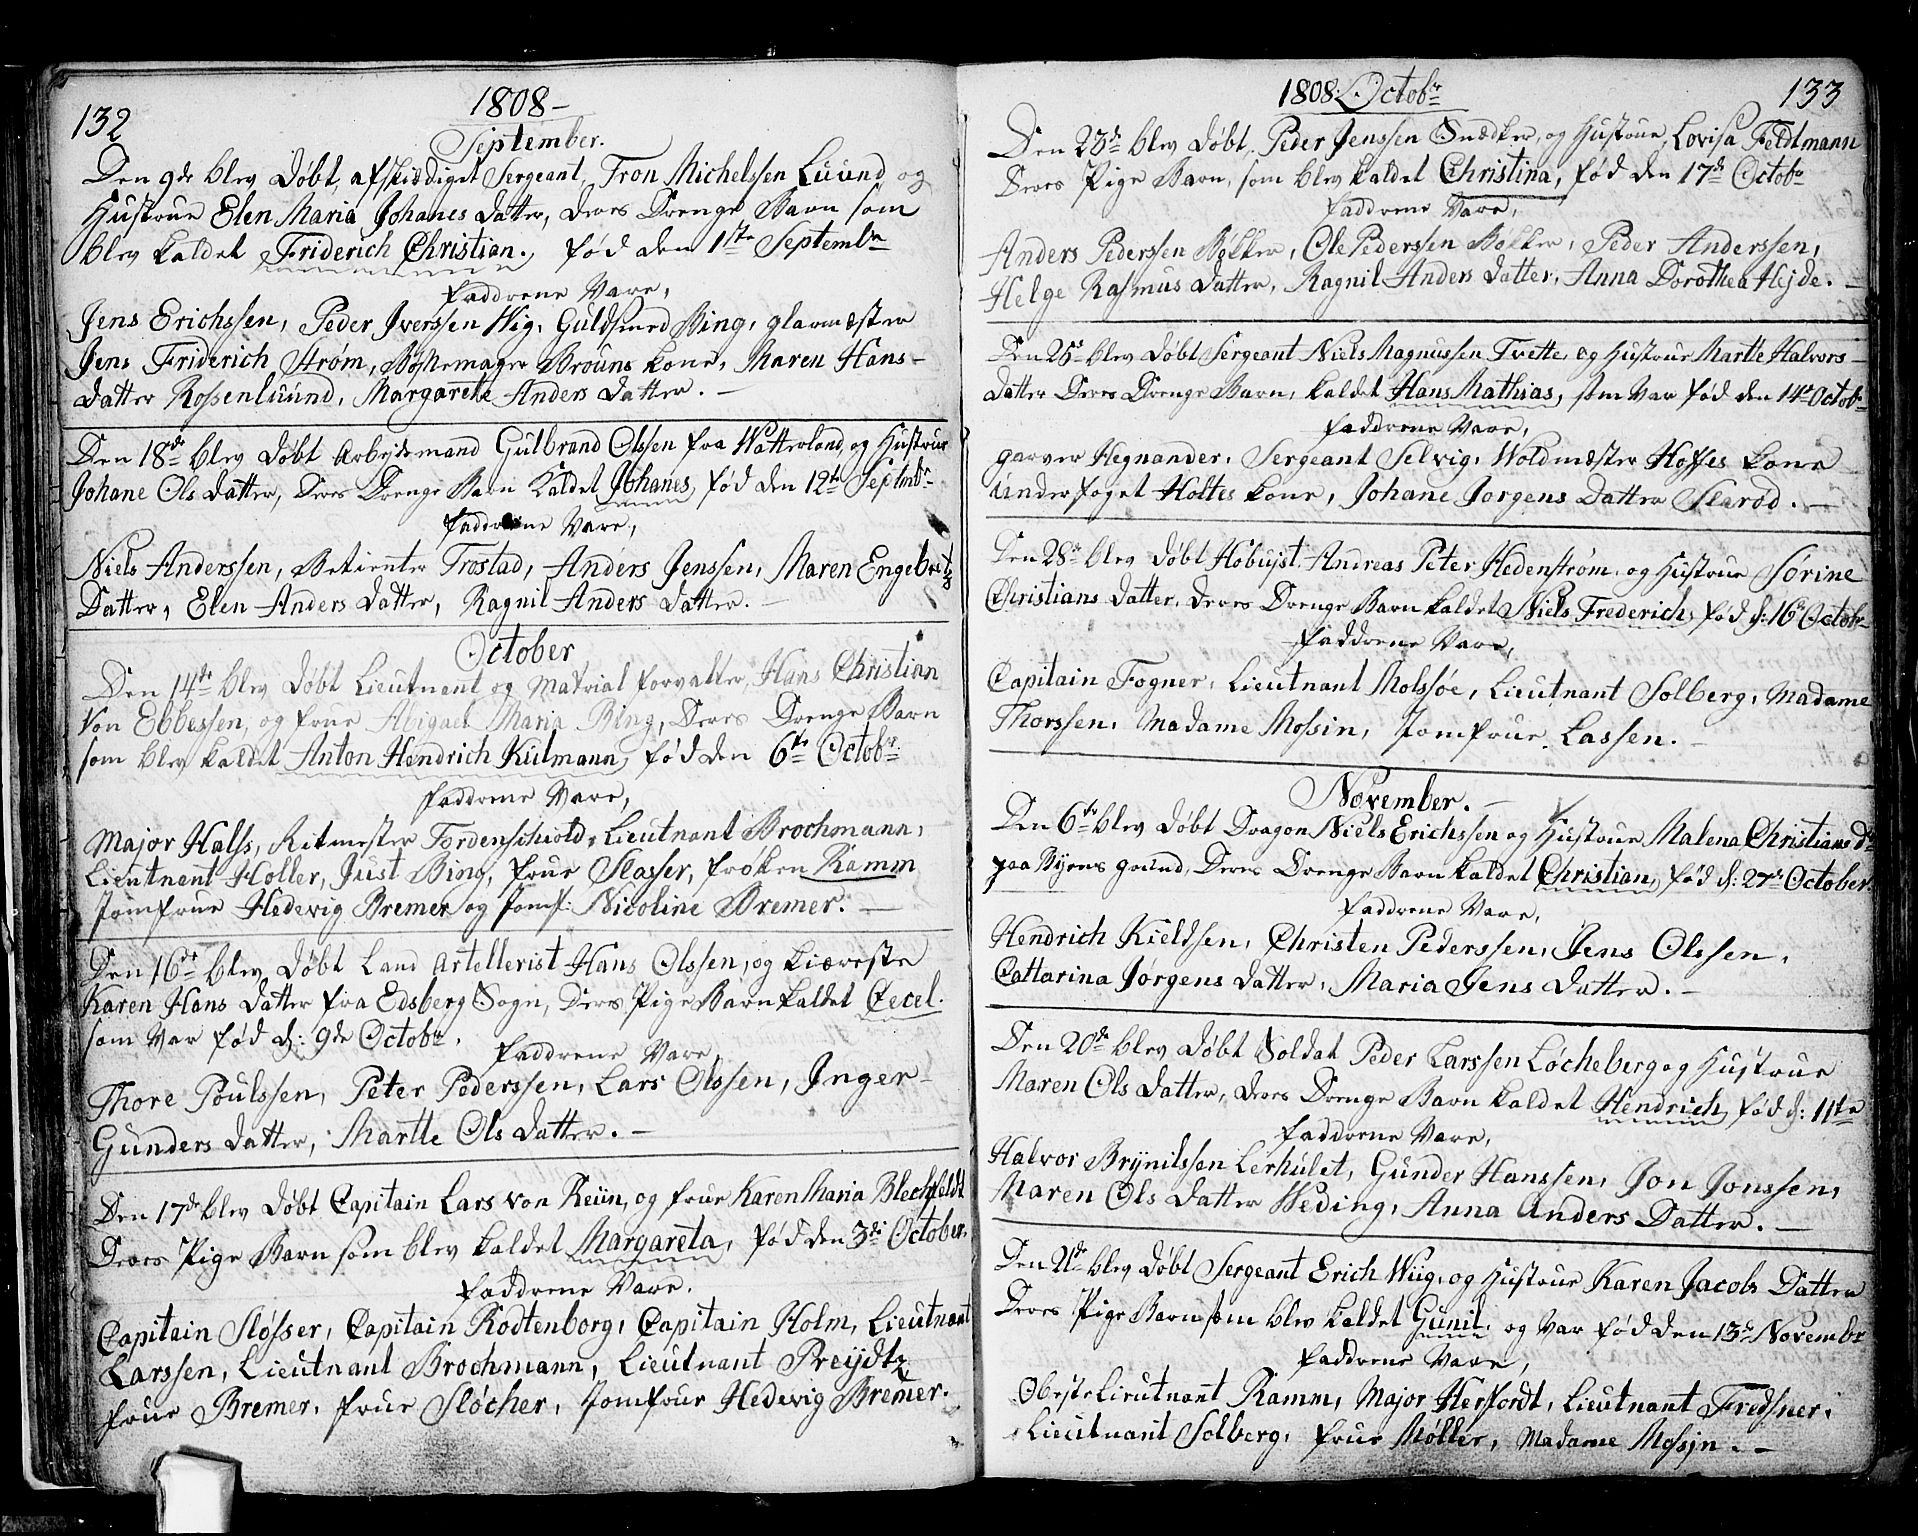 132
1808 –
September.
Den 9de blev Døbt, afskediget Sergeant, Tron Michelssen Luund og
Hustrue Elen Maria Johanes Datter, Deres Drenge Barn som
blev kaldet Friderich Christian, fød den 1ste Septembr
Faddrene Vare,
Jens Erichssen, Peder Iverssen Wig, Guldsmed Bing, glarmæster
Jens Friderich Strøm, Bøssemager Brouns kone, Maren Hans-
datter Rossenluund, Margarete Anders Datter. –
Den 18de blev Døbt Arbejdsmand Gulbrand Olssen fra Watterland, og Hustrue
Johane Ols Datter, Deres Drenge Barn kaldet Johanes, fød den 12te Septmbr
Faddrene Vare,
Niels Anderssen, Betienter Trostad, Anders Jenssen, Maren Engebretz
Datter, Elen Anders Datter, Ragnil Anders Datter. –
October
Den 14de blev Døbt Lieutnant og Matrial forvalter, Hans Christian
Von Ebbessen, og frue Abigael Maria Bing, Deres Drenge Barn
som blev kaldet Anton Hendrich Kulmann, fød den 6te Octobr.
Faddrene Vare,
Major Halss, Ritmester Tordenschiold, Lieutnant Brochmann,
Lieutnant Holler, Just Bing, frue Slasser, frøken Ramm
Jomfrue Hedevig Bremer og Jomf: Nicoline Bremer. –
Den 16de blev Døbt Land Artellerist Hans Olssen, og kiæreste
Karen Hans Datter fra Edsberg Sogn, Deres Pige Barn kaldet Cecel.
som var fød d: 9de Octobr.
Faddrene Vare,
Thore Poulssen, Peter Pederssen, Lars Olssen, Inger
Gunders Datter, Martte Ols Datter. –
Den 17de blev Døbt Capitain Lars von Kiin, og frue Karen Maria Blechfeldt
Deres Pige Barn som blev kaldet Margareta, fød den 3de October.
Faddrene Vare.
Capitain Slósser, Capitain Rodtenborg, Capitain Holm, Lieutnant
Larssen, Lieutnant Brochmann, Lieutnant Preijdtz
frue Bremer, frue Slócher, Jomfrue Hedevig Bremer.
1808. Octobr
133
Den 23de blev Døbt, Peder Jenssen Snedker, og Hustrue, Lovisa Feldtmann
Deres Pige Barn, som blev kaldet Christina, fød den 17de Octobr
Faddrene Vare,
Anders Pederssen Bøkker, Ole Pederssen Bøkker, Peder Anderssen,
Helge Rasmus Datter, Ragnil Anders Datter, Anna Dorothea Hejde. –
Den 25de blev Døbt Sergeant Niels Magnussen Tvette, og Hustrue Martte Halvors-
datter Deres Drenge Barn, kaldet Hans Mathias, som var fød den 14de Octobr
Faddrene Vare,
garver Hegnander, Sergeant Selvig, Woldmæster Hosses kone
Underfoget Holtes kone, Johane Jorgens Datter Slarod. –
Den 28de blev Døbt Hobuist Andreas Peter Hedenstrøm, og Hustrue Sørine
Christians Datter, Deres Drenge Barn kaldet Niels Frederich, fød d: 16de Octobr
Faddrene Vare,
Capitain Fogner, Lieutnant Molssøe, Lieutnant Solberg, Madame
Thorssen, Madame Mossin, Jomfrue Lassen. –
November. –
Den 6te blev Døbt Dragon Niels Erichssen og Hustrue Malena Christians Dr
paa Byens grund, Deres Drenge Barn kaldet Christian, fød d: 27de October.
Faddrene Vare,
Hendrich Kieldsen, Christen Pederssen, Jens Olssen,
Cattarina Jørgens Datter, Maria Jens Datter. –
Den 20de blev Døbt Soldat Peder Larssen Løcheberg og Hustrue
Maren Ols Datter, Deres Drenge Barn kaldet Hendrich, fød d: 11te
Faddrene Vare,
Halvor Brynilssen Lerhulet, Gunder Hanssen, Jon Jonssen,
Maren Ols Datter Weding, Anna Anders Datter. –
Den 21de blev Døbt Sergeant Erich Wiig, og Hustrue Karen Jacobs Datter
Deres Pige Barn som blev kaldet Gunil, og var fød den 13de Novembr
Faddrene Vare,
ObersteLieutnant Ramm, Major Herfordt, Lieutnant Fredsner,
Lieutnant Solberg, frue Møller, Madame Mossin. –